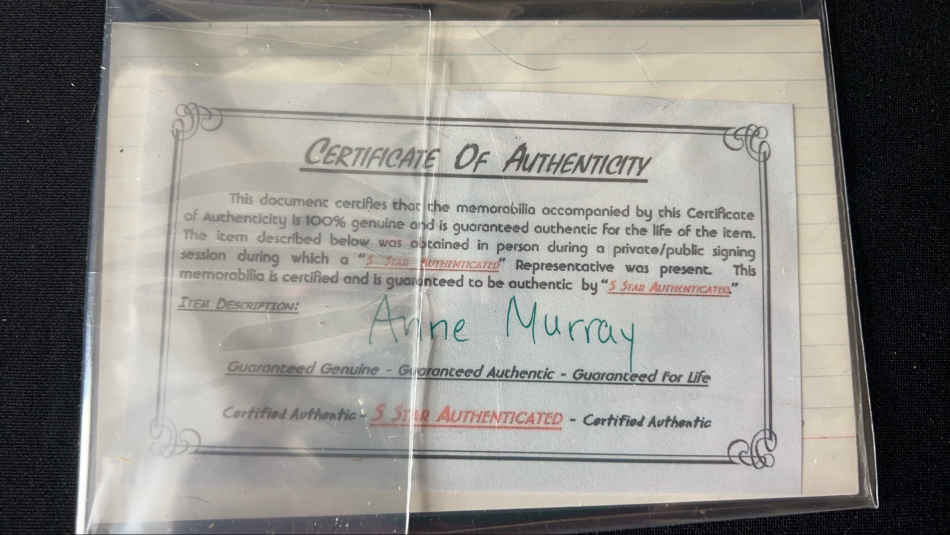 CERTIFICATE OF AUTHENTICITY
This document certifies that the memorabilia accompanied by this Certificate
of Authenticity is 100% genuine and is guaranteed authentic for the life of the item.
The item described below was obtained in person during a private/public signing
session during which a "5 STAR AUTHENTICATED" Representative was present. This
memorabilia is certified and is guaranteed to be authentic by "5 STAR AUTHENTICATED."
ITEM DESCRIPTION:
Anne Murray
Guaranteed Genuine - Guaranteed Authentic - Guaranteed For Life
Certified Authentic - 5 STAR AUTHENTICATED - Certified Authentic